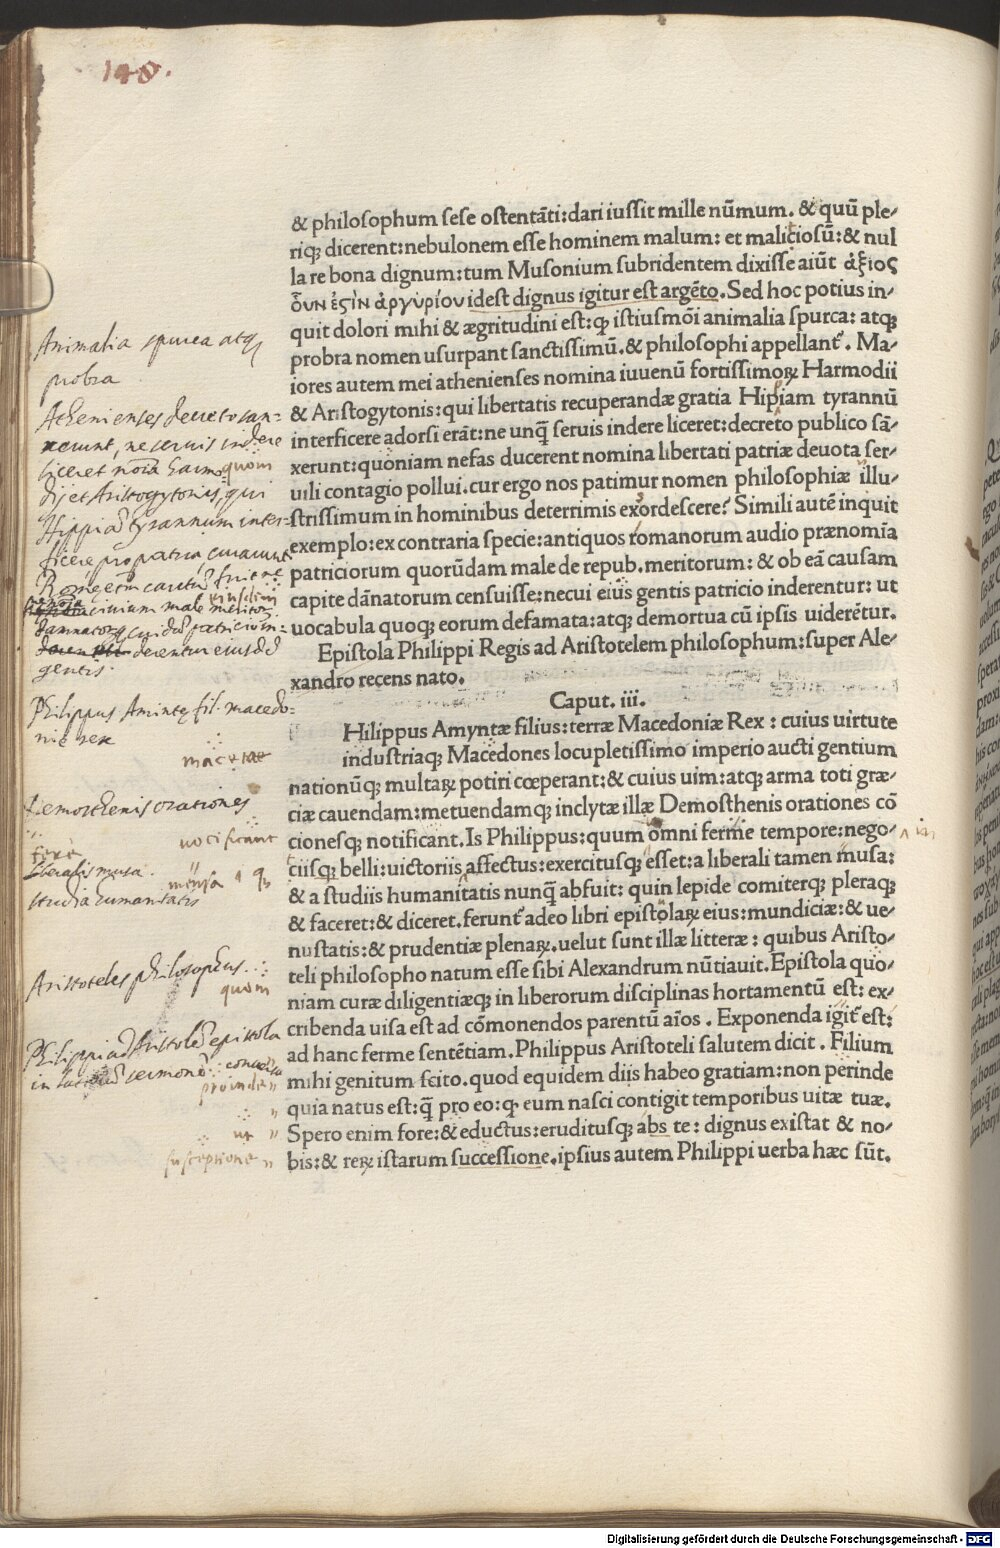 148.
& philoſophum ſeſe oſtentāti:dari iuſſit mille nūmum. & quū ple⸗
riqꝫ dicerent:nebulonem eſſe hominem malum: et malicioſū:& nul
la re bona dignum:tum Muſonium ſubridentem dixiſſe aiūt ἄξιος
ὀυν ἐςὶν ἀργύρίου ideſt dignus igitur eſt argēto.Sed hoc potius in⸗
quit dolori mihi & ægritudini eſt:ꝙ iſtiuſmōi animalia ſpurca: atqꝫ
probra nomen uſurpant ſanctiſſimū.& philoſophi appellant᷑. Ma⸗
iores autem mei athenienſes nomina iuuenū fortiſſimoꝝ Harmodii
& Ariſtogytonis:qui libertatis recuperandæ gratia Hipiam tyrannū
interficere adorſi erāt:ne unq̄ ſeruis indere liceret:decreto publico ſā⸗
xerunt:quoniam nefas ducerent nomina libertati patriæ deuota ſer⸗
uili contagio pollui.cur ergo nos patimur nomen philoſophiæ illu⸗
ſtriſſimum in hominibus deterrimis exordeſcere? Simili autē inquit
exemplo:ex contraria ſpecie:antiquos romanorum audio prænomīa
patriciorum quorūdam male de repub.meritorum: & ob eā cauſam
capite dānatorum cenſuiſſe:necui eius gentis patricio inderentur: ut
uocabula quoqꝫ eorum defamata:atqꝫ demortua cū ipſis uiderētur.
Epiſtola Philippi Regis ad Ariſtotelem philoſophum:ſuper Ale⸗
xandro recens nato.
Caput. iii.
Hilippus Amyntæ filius:terræ Macedoniæ Rex : cuius uirtute
induſtriaqꝫ Macedones locupletiſſimo imperio aucti gentium
nationūqꝫ multaꝝ potiri cœperant:& cuius uim:atqꝫ arma toti græ⸗
ciæ cauendam:metuendamqꝫ inclytæ illæ Demoſthenis orationes cō
cioneſqꝫ notificant.Is Philippus:quum omni ferme tempore:nego⸗
ciiſqꝫ belli:uictoriis affectus:exercituſqꝫ eſſet:a liberali tamen muſa:
& a ſtudiis humanitatis nunq̄ abfuit: quin lepide comiterqꝫ pleraqꝫ
& faceret:& diceret.ferunt᷑ adeo libri epiſtolaꝝ eius:mundiciæ:& ue⸗
nuſtatis:& prudentiæ plenaꝝ.uelut ſunt illæ litteræ : quibus Ariſto⸗
teli philoſopho natum eſſe ſibi Alexandrum nūtiauit.Epiſtola quo⸗
niam curæ diligentiæqꝫ in liberorum diſciplinas hortamentū eſt: ex⸗
cribenda uiſa eſt ad cōmonendos parentū aīos . Exponenda igit᷑ eſt:
ad hanc ferme ſentētiam.Philippus Ariſtoteli ſalutem dicit . Filium
mihi genitum ſcito.quod equidem diis habeo gratiam:non perinde
quia natus eſt:q̄ pro eo:ꝙ eum naſci contigit temporibus uitæ tuæ.
Spero enim fore:& eductus:eruditulqꝫ abs te: dignus exiſtat & no⸗
bis:& reꝝ iſtarum ſucceſſione.ipſius autem Philippi uerba hæc ſūt.
Animalia spurca atqꝫ
probra
Athenienses decreto san=
xerunt, ne servis indere
liceret
quom
et Aristogytonis, qui
Hippiā tyrannum inter=
ficere pro patria curarunt
civium male meritoꝝ
gentis.
Philippus Amintę fil. macedo=
nię rex
macerae
Demosthenis orationes
nocificant
ferè
Liberalis musa.
mensa
studia humanitatis
in
Aristoteles philosophus
quom
Philippi ad Aristotelē epistola
in sermonē conversa
proinde
ut
susceptione
Digitalisierung gefördert durch die Deutsche Forschungsgemeinschaft - DFG